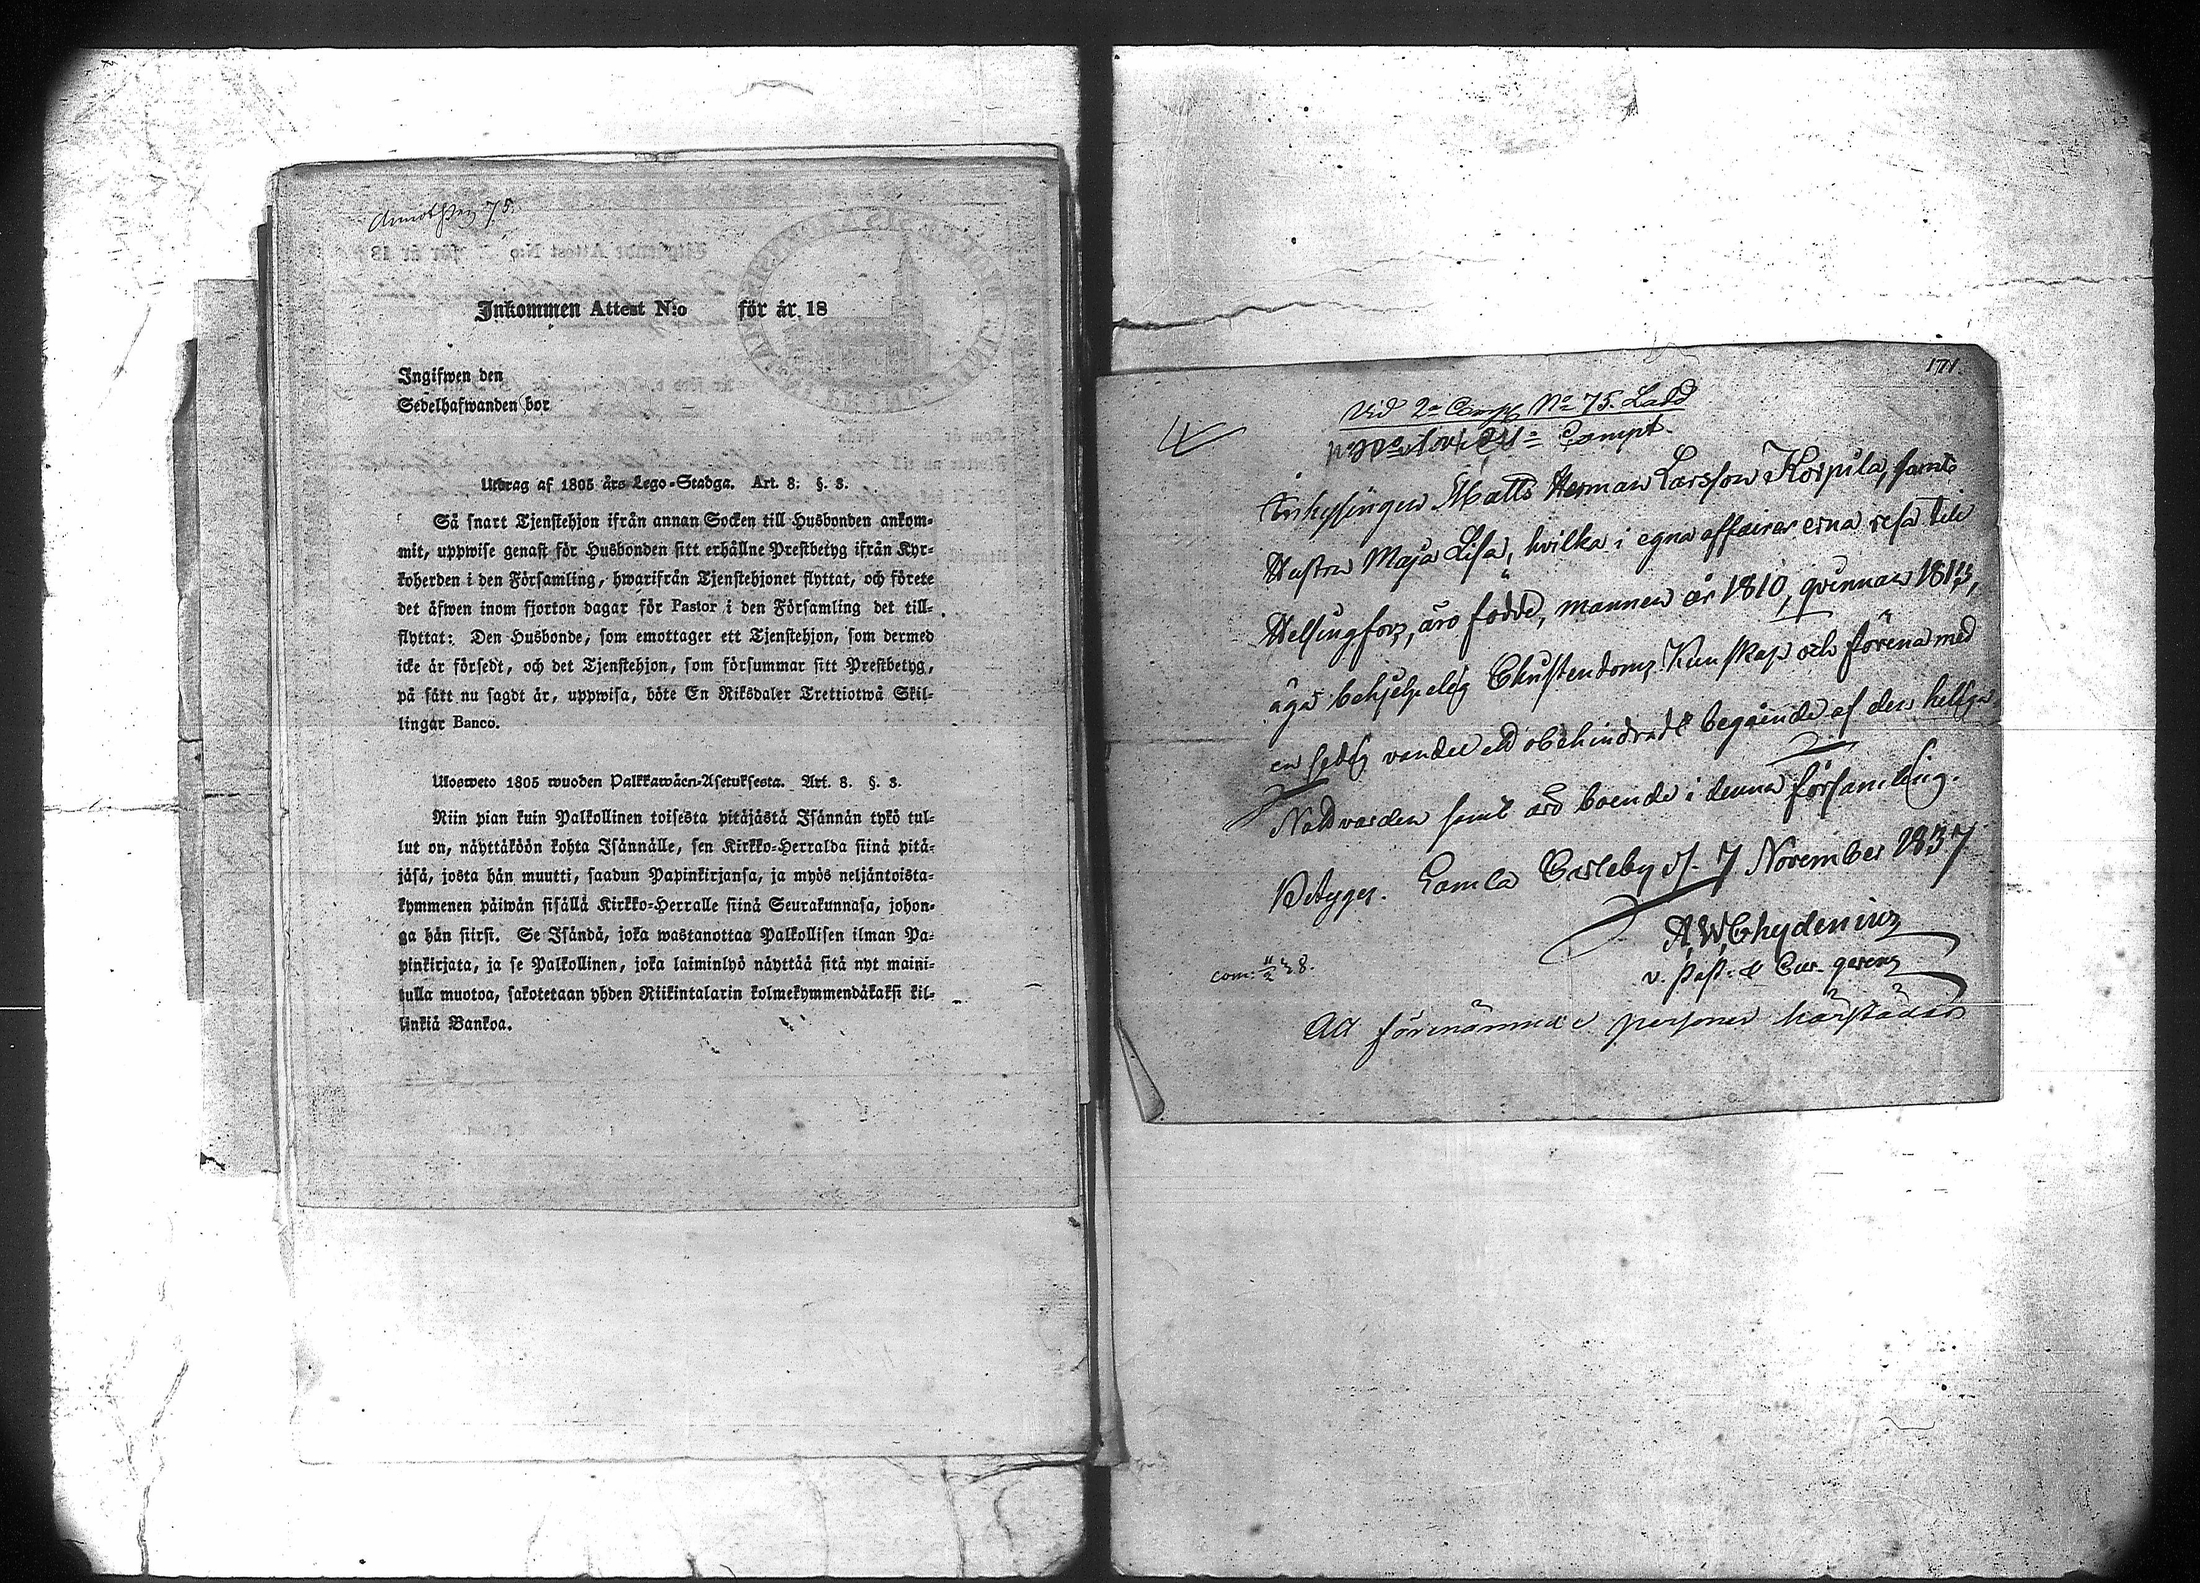 75.
Inkommen Attest N:o för år 18
Ingifwen den
Sedelhafwanden bor
Utdrag af 1805 års Lego-Stadga. Art. 8. §. 3.
Så snart Tjenstehjon ifrån annan Socken till Husbonden ankom-
mit, uppwise genast för Husbonden sitt erhållne Prestbetyg ifrån Kyr-
koherden i den Församling, hwarifrån Tjenstehjonet flyttat, och förete
det äfwen inom fjorton dagar för Pastor i den Församling det till-
flyttat: Den Husbonde, som emottager ett Tjenstehjon, som dermed
icke är försedt, och det Tjenstehjon, som försummar sitt Prestbetyg,
på sätt nu sagdt är, uppwisa, böte En Riksdaler Trettiotwå Skil-
lingar Banco.
Ulosweto 1805 wuoden Palkkawäen-Asetuksesta. Art. 8. §. 3.
Niin pian kuin Palkollinen toisesta pitäjästä Isännän tykö tul-
lut on, näyttäköön kohta Isännälle, sen Kirkko-Herralda siinä pitä-
jäsä, josta hän muutti, saadun Papinkirjansa, ja myös neljäntoista-
kymmenen päiwän sisällä Kirkko-Herralle siinä Seurakunnasa, johon-
ga hän siirsi. Se Isändä, joka wastanottaa Palkollisen ilman Pa-
pinkirjata, ja se Palkollinen, joka laiminlyö näyttää sitä nyt maini-
tulla muotoa, sakotetaan yhden Riikintalarin kolmekymmendäkaksi kil-
linkiä Bankoa.
171.
Vid 2a Comp. No 75. Ladd
Compt.
Inhysingen Matts Herman Larsson Korpila, samt
Hustru Maja Lisa, hvilka i egna affairer erna resa till
Helsingfors, äro födde, mannen år 1810, qvinnan 1813,
äga behjelpelig Christendoms Kunskap och förena med
en sedlig vandel ett obehindradt begående af den heliga
Nattvarden samt äro boende i denna församling.
Betygas. Gamla Carleby d. 7 November 1837
A. W. Chydenius
v. past: & Cur. gerens
com: 38.
Att förenämnde personer härstädes